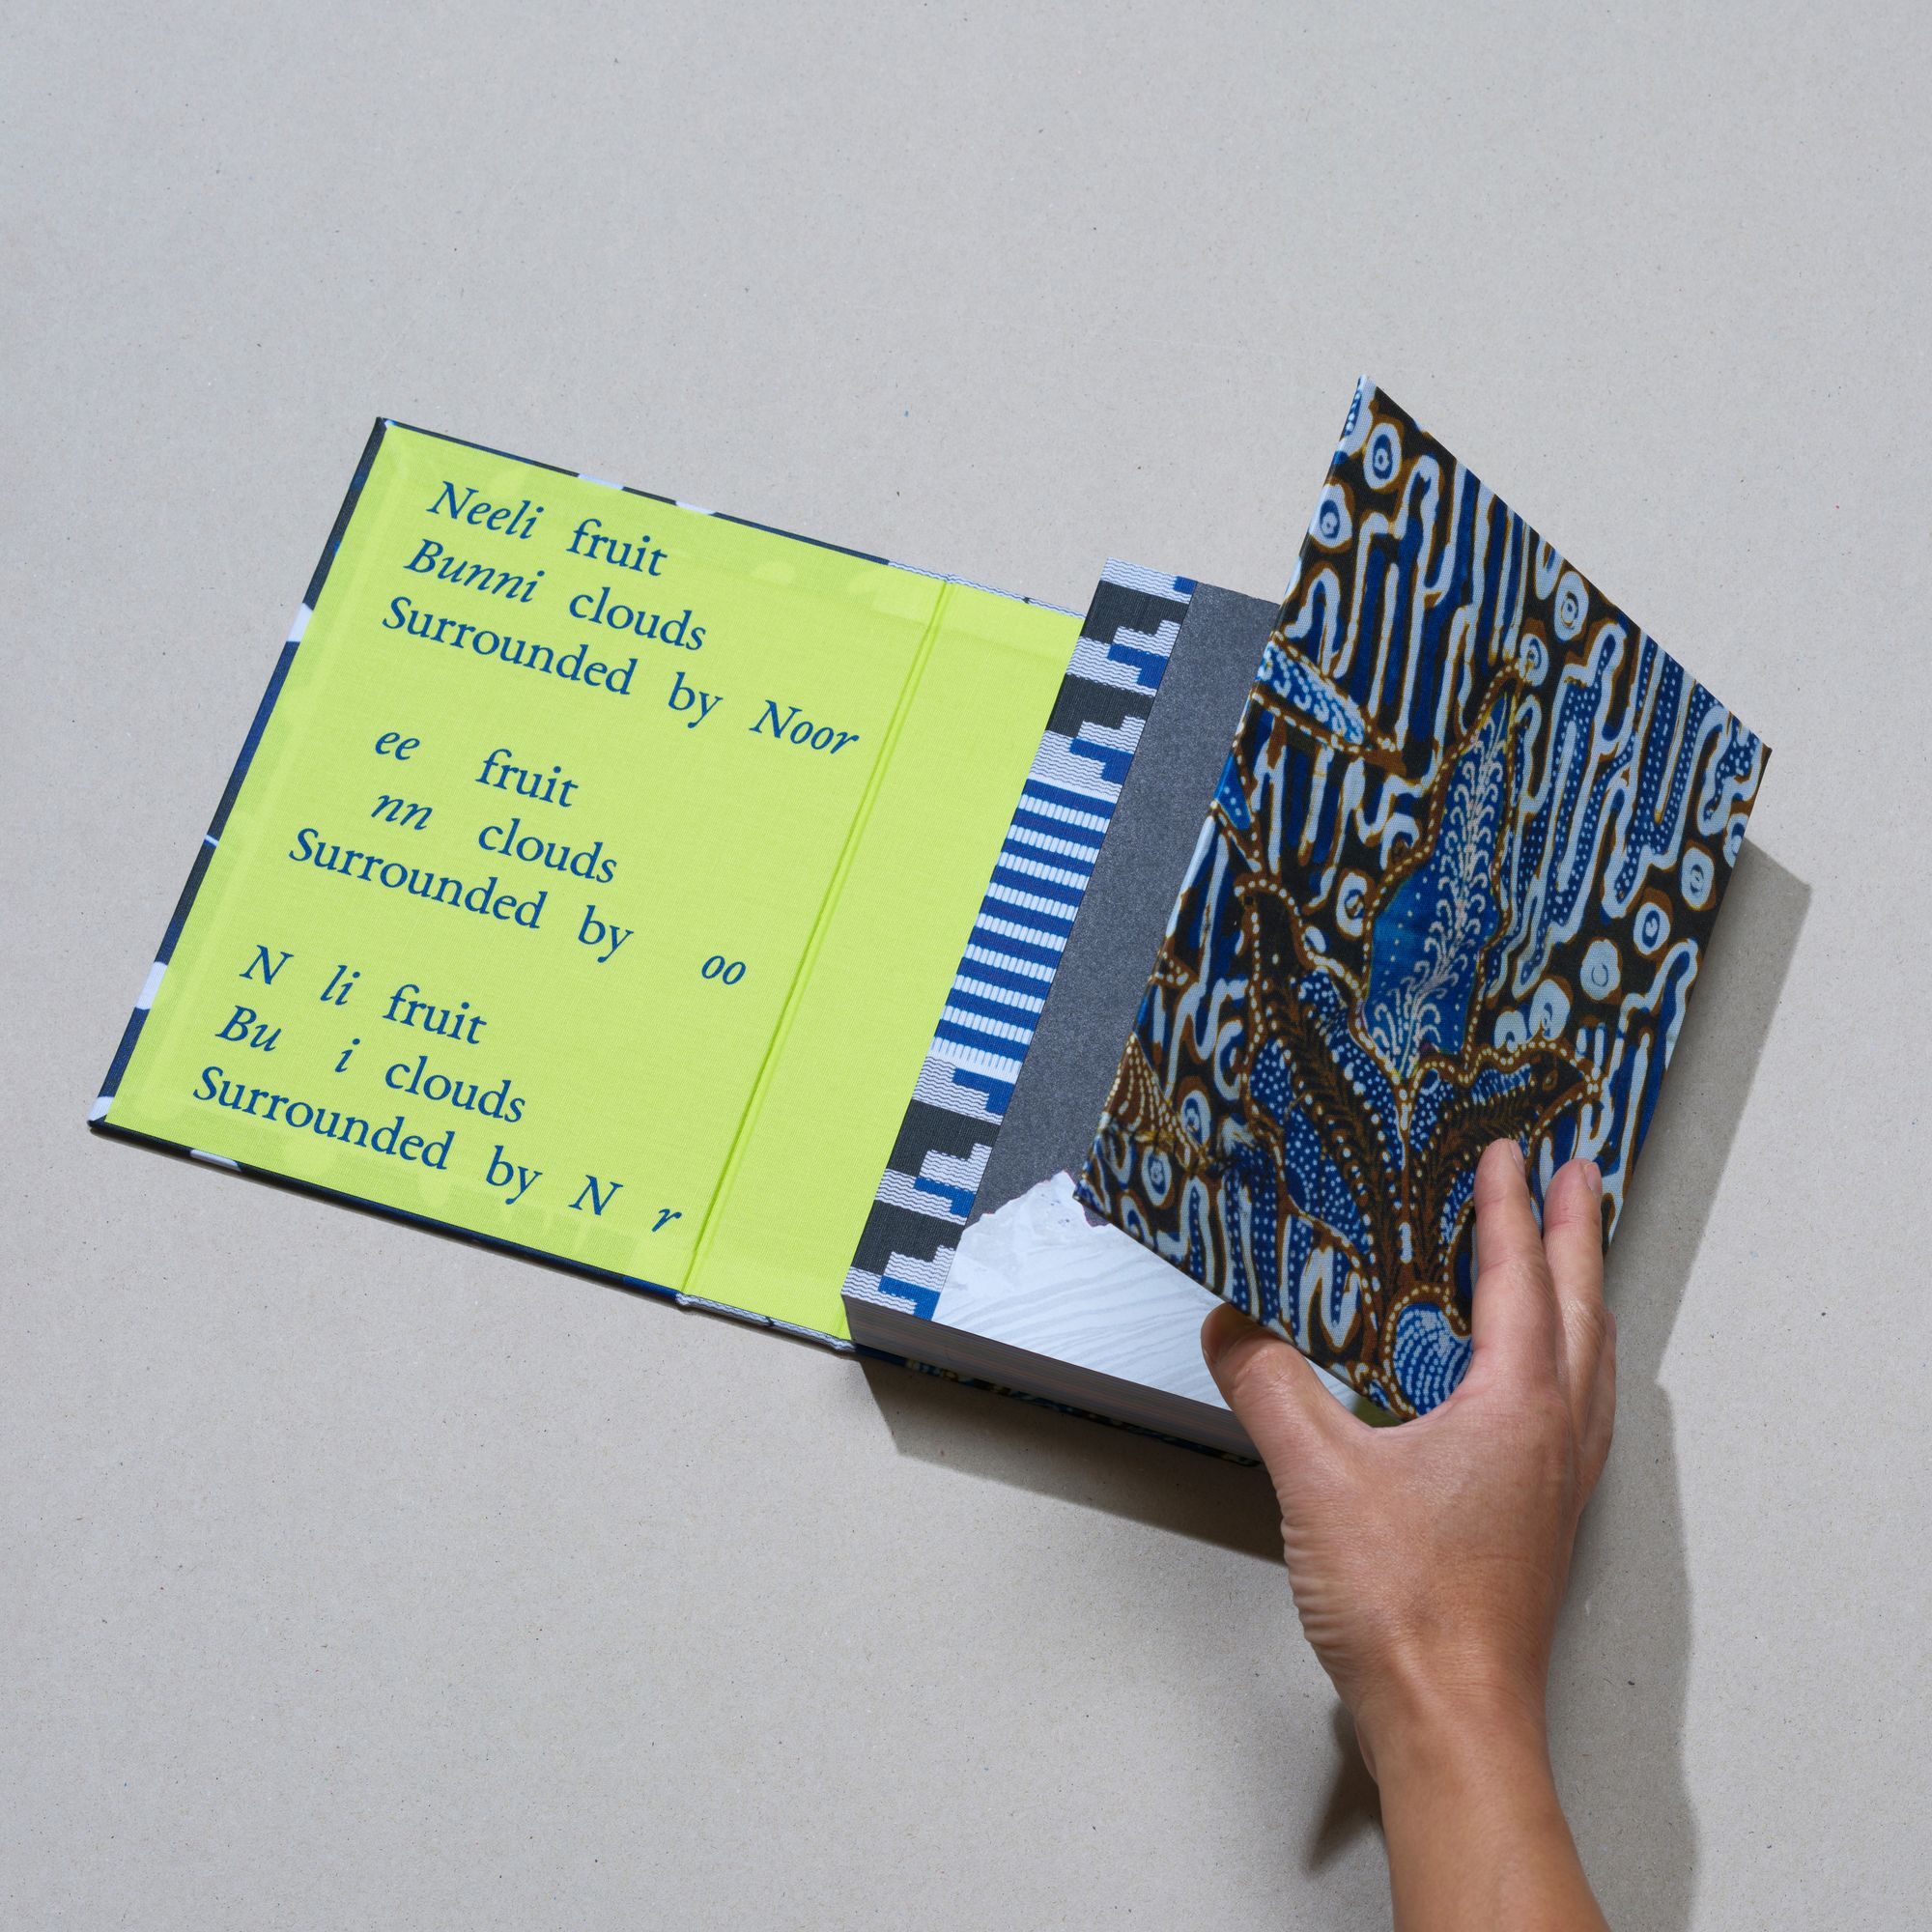 Neeli fruit
Bunni clouds
Surrounded by Noor
ee fruit
nn clouds
Surrounded by oo
N li fruit
Bu i clouds
Surrounded by N r